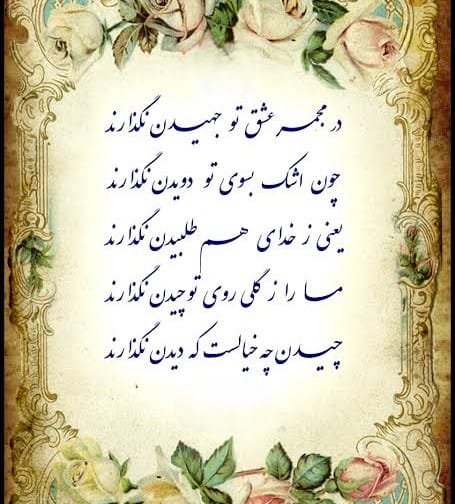 در مجمر عشق تو جهیدن نگذارند
چون اشک بسوی تو دویدن نگذارند
یعنی ز خدای هم طلبیدن نگذارند
ما را ز گلی روی تو چیدن نگذارند
چیدن چه خیالست که دیدن نگذارند